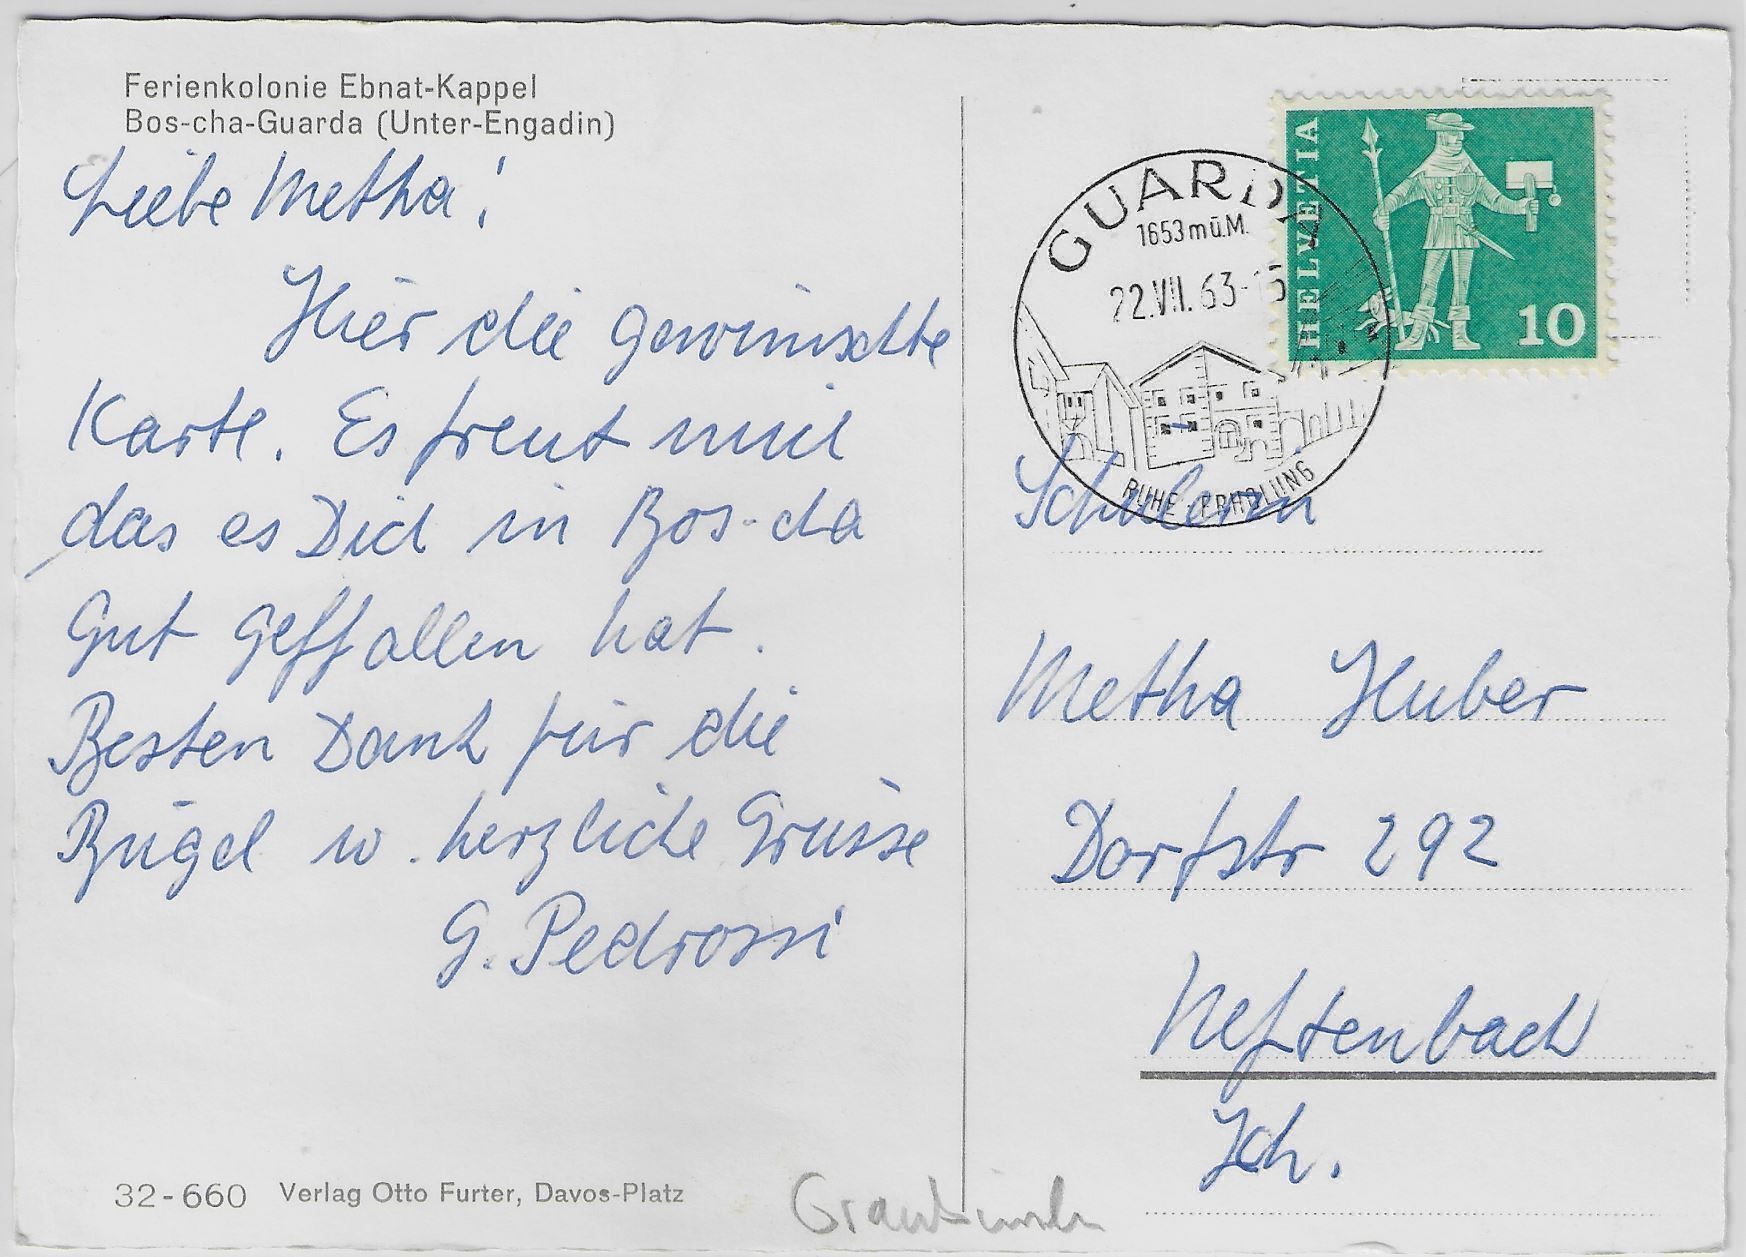 Ferienkolonie Ebnat-Kappel
Bos-cha-Guarda (Unter-Engadin)
Liebe Metha!
Hier die gewünschte
Karte. Es freut mich
das es Dich in Bos-cha
Gut geffallen hat.
Besten Dank für die
Bügel u. herzliche Grüsse
G. Pedrossi
32-660 Verlag Otto Furter, Davos-Platz
GUARDA
1653 m ü.M.
22.VII.63-15
RUHE ERHOLUNG
HELVETIA
10
Schülerin
Metha Huber
Dorfstr 292
Neftenbach
Zch.
Graubünden